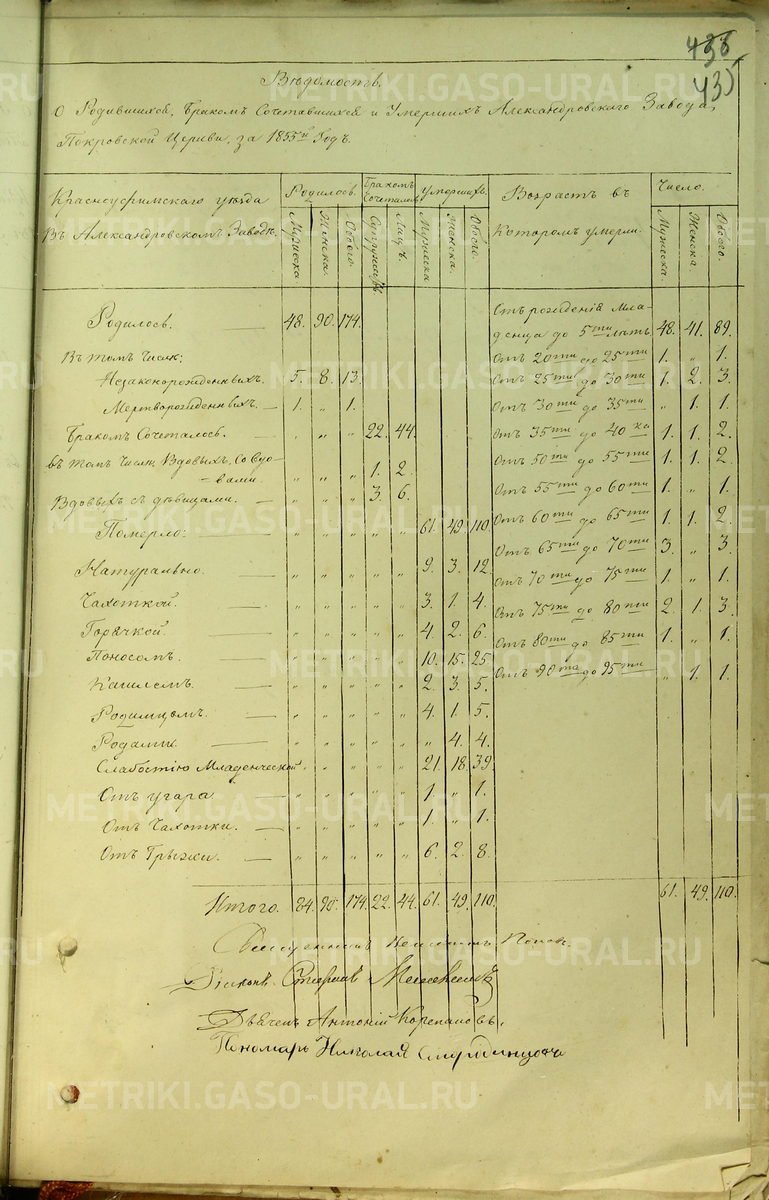 438
435
Вѣдомость.
О Родившихся, Бракомъ Сочетавшихся и Умершихъ Александровскаго Завода,
Покровской Церкви, за 1855й Годъ.
Красноуфимскаго уѣзда
Въ Александровскомъ Заводѣ.
Родилось.
Бракомъ Сочеталось
Умершихъ.
Возрастъ въ
Которомъ умерли.
Число.
Мужеска. Женска. Обоего. Супружествъ Лицъ. Мужеска Женска. Обоего. Мужеска. Женска. Обоего.
Родилось. 48. 90. 174.
Въ томъ Числѣ:
Незаконорожденныхъ. 5. 8. 13.
Мертворожденныхъ. 1. „ 1.
Бракомъ Сочеталось. „ „ „ 22. 44.
въ томъ Числѣ Вдовыхъ, со вдо-
вами. „ „ „ 1. 2.
Вдовыхъ съ дѣвицами. „ „ „ 3. 6.
Померло: „ „ „ „ „ 61. 49. 110.
Натурально. „ „ „ „ „ 9. 3. 12.
Чахоткой. „ „ „ „ „ 3. 1. 4.
Горячкой. „ „ „ „ „ 4. 2. 6.
Поносомъ. „ „ „ „ „ 10. 15. 25
Кашлемъ. „ „ „ „ „ 2. 3. 5.
Родимцемъ. „ „ „ „ „ 4. 1. 5.
Родами. „ „ „ „ „ „ 4. 4.
Слабостію Младенческой. „ „ „ „ 21. 18. 39.
Отъ угара „ „ „ „ „ 1 „ 1.
Отъ Чахотки. „ „ „ „ „ 1. „ 1.
Отъ Грыжи. „ „ „ „ „ 6. 2. 8.
Итого. 84. 90. 174. 22. 44. 61. 49. 110.
Отъ рожденія Мла-
денца до 5ти лѣтъ 48. 41. 89.
Отъ 20ти до 25ти 1. „ 1.
Отъ 25ти до 30ти 1. 2. 3.
Отъ 30ти до 35ти „ 1. 1.
Отъ 35ти до 40ка 1. 1. 2.
Отъ 50ти до 55ти 1. 1. 2.
Отъ 55ти до 60ти 1. „ 1.
Отъ 60ти до 65ти 1. 1. 2.
Отъ 65ти до 70ти 3. „ 3.
Отъ 70ти до 75ти 1. „ 1.
Отъ 75ти до 80ти 2. 1. 3.
Отъ 80ти до 85ти 1. „ 1.
Отъ 90та до 95ти „ 1. 1.
61. 49. 110.
Священникъ Поповъ.
Діаконъ
Дьячекъ Антоній Корепановъ.
Пономарь Николай
METRIKI.GASO-URAL.RU